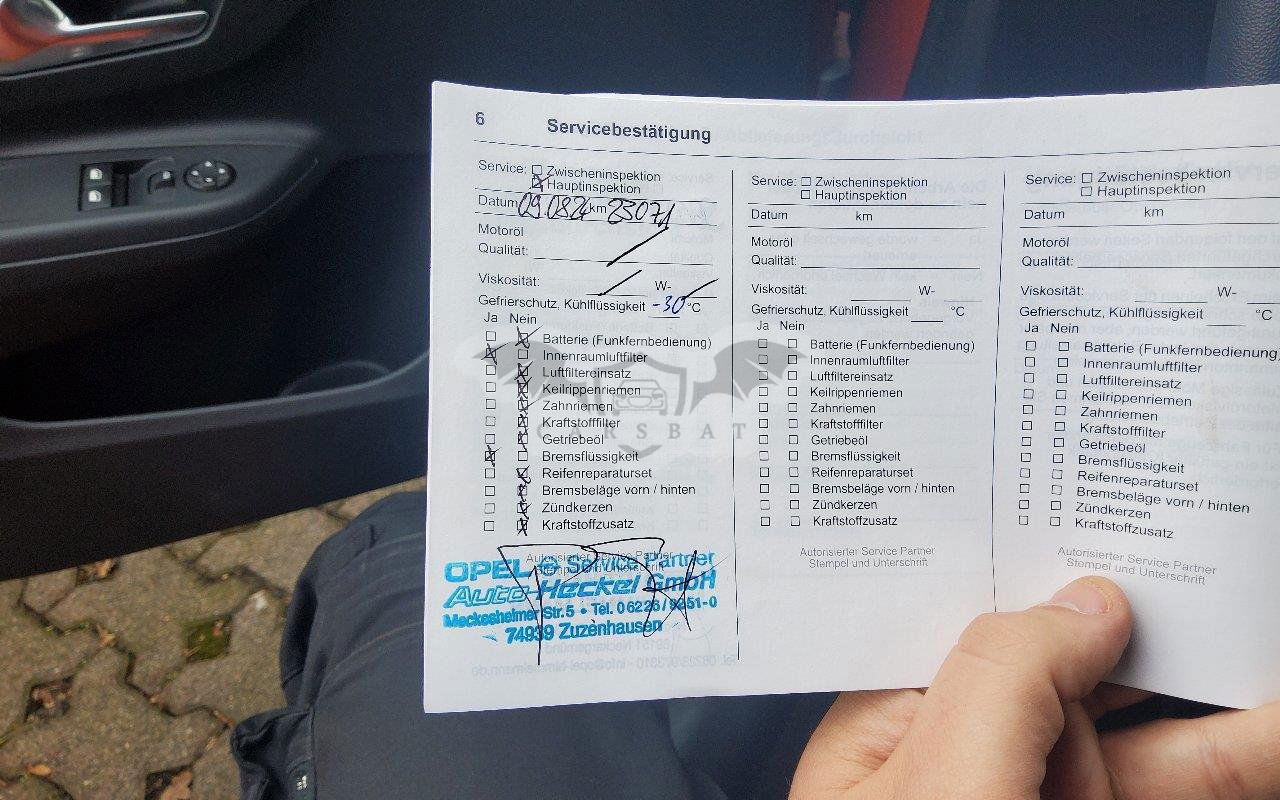 6 Servicebestätigung
Service: Zwischeninspektion
Hauptinspektion
Datum 09.08.24 km 23071
Motoröl
Qualität:
Viskosität: W-
Gefrierschutz, Kühlflüssigkeit -30 °C
Ja Nein
Batterie (Funkfernbedienung)
Innenraumluftfilter
Luftfiltereinsatz
Keilrippenriemen
Zahnriemen
Kraftstofffilter
Getriebeöl
Bremsflüssigkeit
Reifenreparaturset
Bremsbeläge vorn / hinten
Zündkerzen
Kraftstoffzusatz
Autorisierter Service Partner
Stempel und Unterschrift
OPEL Service Partner
Auto-Heckel GmbH
Meckesheimer Str. 5 • Tel. 06226 / 9251-0
74939 Zuzenhausen
Service: Zwischeninspektion
Hauptinspektion
Datum km
Motoröl
Qualität:
Viskosität: W-
Gefrierschutz, Kühlflüssigkeit °C
Ja Nein
Batterie (Funkfernbedienung)
Innenraumluftfilter
Luftfiltereinsatz
Keilrippenriemen
Zahnriemen
Kraftstofffilter
Getriebeöl
Bremsflüssigkeit
Reifenreparaturset
Bremsbeläge vorn / hinten
Zündkerzen
Kraftstoffzusatz
Autorisierter Service Partner
Stempel und Unterschrift
Service: Zwischeninspektion
Hauptinspektion
Datum km
Motoröl
Qualität:
Viskosität: W-
Gefrierschutz, Kühlflüssigkeit °C
Ja Nein
Batterie (Funkfernbedienung)
Innenraumluftfilter
Luftfiltereinsatz
Keilrippenriemen
Zahnriemen
Kraftstofffilter
Getriebeöl
Bremsflüssigkeit
Reifenreparaturset
Bremsbeläge vorn / hinten
Zündkerzen
Kraftstoffzusatz
Autorisierter Service Partner
Stempel und Unterschrift
CARSBAT